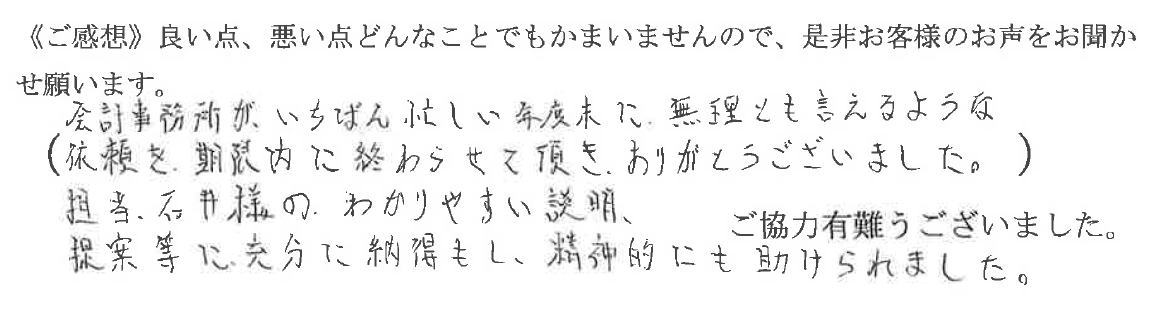 《ご感想》良い点、悪い点どんなことでもかまいませんので、是非お客様のお声をお聞か
せ願います。
会計事務所が、いちばん忙しい年度末に、無理とも言えるような
(依頼を、期限内に終わらせて頂き、ありがとうございました。)
担当、石井様の、わかりやすい説明、
ご協力有難うございました。
提案等に、充分に納得もし、精神的にも助けられました。